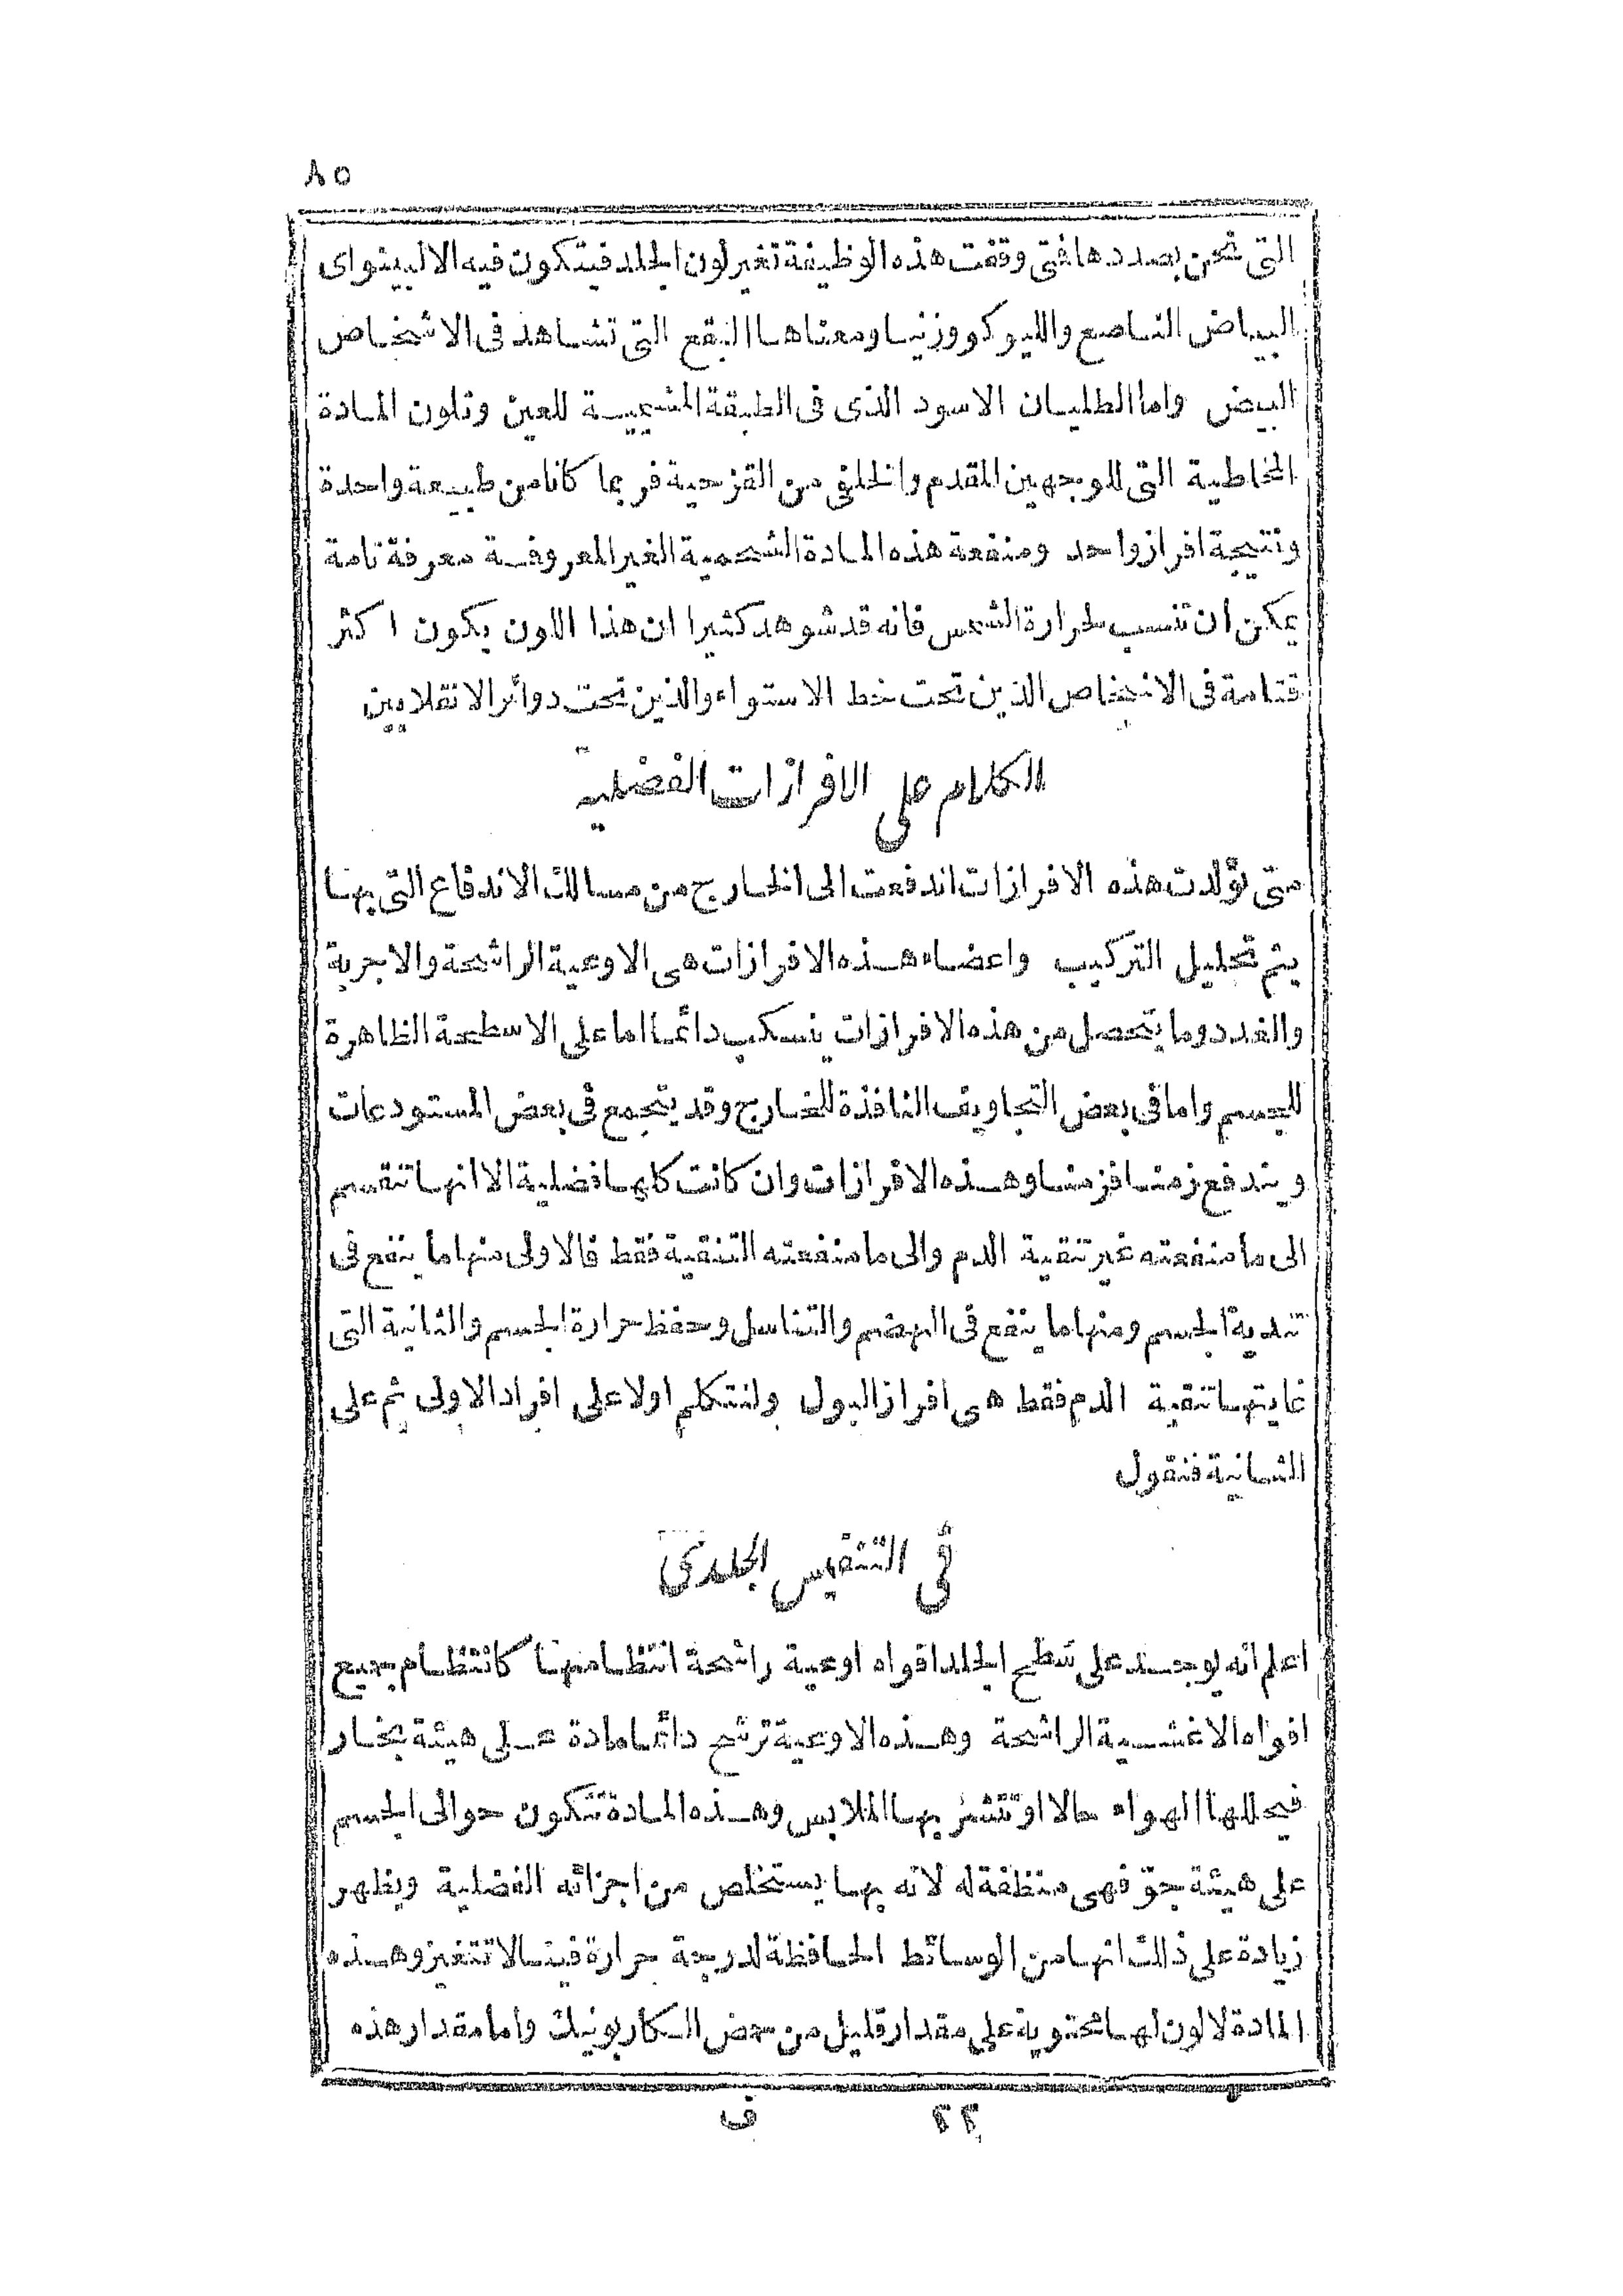 ٨٥
التى نحن بصددها فتى وقفت هذه الوظيفة تغير لون الجلد فيتكون فيه الالبينو اى
البياض الناصع والليوكووزنيا ومعناها البقع التى تشاهد فى الاشخاص
البيض واما الطليان الاسود الذى فى الطبقة المشيمية للعين وتلون المادة
المخاطية التى للوجهين المقدم والخلفى من القزحية فربما كانا من طبيعة واحدة
ونتيجة افراز واحد ومنفعة هذه المادة الشحمية الغير المعروفة معرفة تامة
يمكن ان تنسب لحرارة الشمس فانه قد شوهد كثيرا ان هذا اللون يكون اكثر
قتامة فى الاشخاص الذين تحت خط الاستواء والذين تحت دوائر الانقلابين
الكلام على الافرازات الفضلية
متى تولدت هذه الافرازات اندفعت الى الخارج من مسالك الاندفاع التى بها
يتم تحليل التركيب واعضاء هذه الافرازات هى الاوعية الراشحة والاجربة
والغدد وما يتحصل من هذه الافرازات ينسكب دائما اما على الاسطحة الظاهرة
للجسم واما فى بعض التجاويف النافذة للخارج وقد يتجمع فى بعض المستودعات
ويندفع زمنا فزمنا وهذه الافرازات وان كانت كلها فضلية الا انها تنقسم
الى ما منفعته غير تنقية الدم والى ما منفعته التنقية فقط فالاولى منها ما ينفع فى
تندية الجسم ومنها ما ينفع فى الهضم والتناسل وحفظ حرارة الجسم والثانية التى
غايتها تنقية الدم فقط هى افراز البول ولنتكلم اولا على افراد الاولى ثم على
الثانية فنقول
فى التنفيس الجلدى
اعلم انه يوجد على سطح الجلد افواه اوعية راشحة انتظامها كانتظام جميع
افواه الاغشية الراشحة وهذه الاوعية ترشح دائما مادة على هيئة بخار
فيحللها الهواء حالا او تتشرّ بها الملابس وهذه المادة تتكون حوالى الجسم
على هيئة جوّ فهى منظفة له لانه بها يستخلص من اجزائه الفضلية ويظهر
زيادة على ذلك انها من الوسائط الحافظة لدرجة حرارة فينا لا تتغير وهذه
المادة لا لون لها محتوية على مقدار قليل من حمض الكاربونيك واما مقدار هذه
٢٢ ف